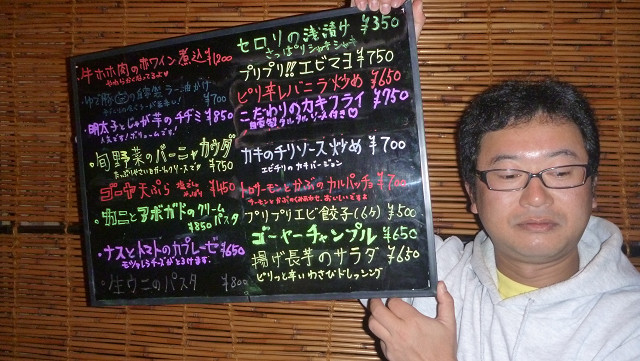 牛ホホ肉の赤ワイン煮込 ¥1200
やわらかくなってるよ♥
ゆで豚の特製ラー油かけ
¥700
明太子とじゃが芋のチヂミ ¥850
人気です!ボリュームです!
旬野菜のバーニャカウダ
¥750
ゴーヤ天ぷら ¥450
カニとアボガドのクリームパスタ
¥850
ナスとトマトのカプレーゼ ¥650
モツァレラチーズがとろけます。
生ウニのパスタ ¥800
セロリの浅漬け ¥350
さっぱりシャキシャキ
プリプリ!!!エビマヨ ¥750
ピリ辛レバニラ炒め ¥650
こだわりのカキフライ ¥750
自家製タルタルソース付き♡
カキのチリソース炒め ¥700
エビチリのカキバージョン
トロサーモンとかぶのカルパッチョ ¥700
サーモンとかぶの組みあわせ、おいしいですよ
プリプリエビ餃子(6ヶ) ¥500
ゴーヤーチャンプル ¥650
揚げ長芋のサラダ ¥650
ピリっと辛いわさびドレッシング